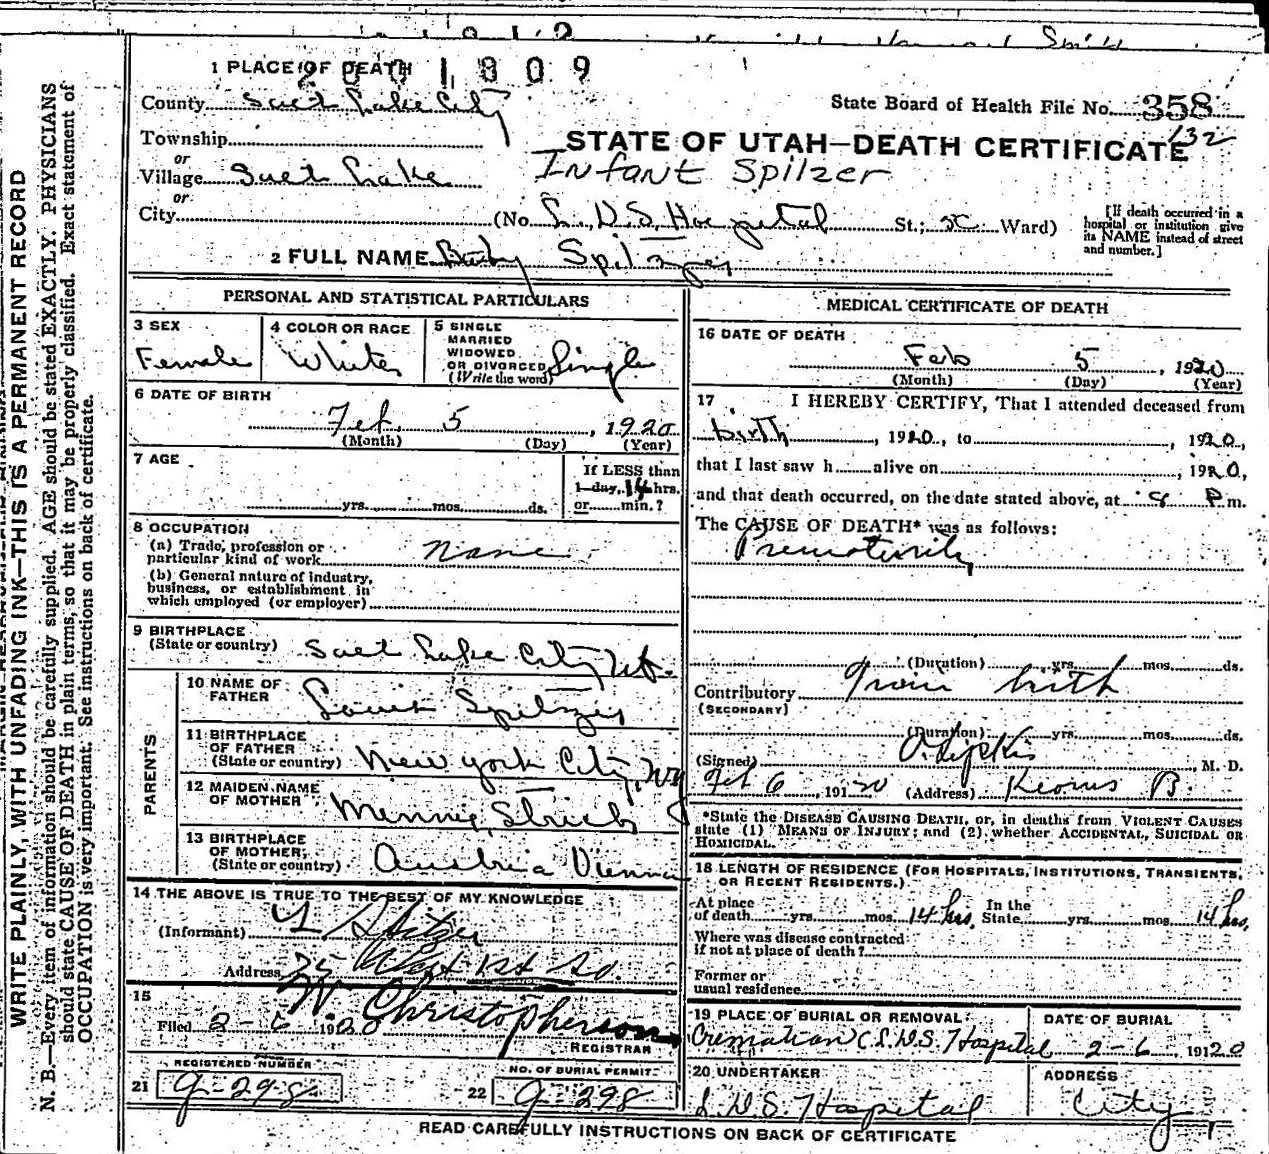 1 PLACE OF DEATH
2001809
County Salt Lake City
State Board of Health File No. 358
132
Township
or
STATE OF UTAH—DEATH CERTIFICATE
Village Salt Lake
Infant Spilzer
or
City (No. L. D. S. Hospital St.; Ward)
[If death occurred in a hospital or institution give its NAME instead of street and number.]
2 FULL NAME Baby Spitzer
PERSONAL AND STATISTICAL PARTICULARS
3 SEX
Female
4 COLOR OR RACE
White
5 SINGLE
MARRIED
WIDOWED
OR DIVORCED
(Write the word)
Single
6 DATE OF BIRTH
Feb. 5, 1920
(Month) (Day) (Year)
7 AGE
yrs. mos. ds.
If LESS than
1 day, 14 hrs.
or min.?
8 OCCUPATION
(a) Trade, profession or
particular kind of work None
(b) General nature of industry,
business, or establishment in
which employed (or employer)
9 BIRTHPLACE
(State or country) Salt Lake City Ut.
PARENTS
10 NAME OF
FATHER Louis Spitzer
11 BIRTHPLACE
OF FATHER
(State or country) New York City, NY
12 MAIDEN NAME
OF MOTHER Minnie
13 BIRTHPLACE
OF MOTHER
(State or country) Austria Vienna
14 THE ABOVE IS TRUE TO THE BEST OF MY KNOWLEDGE
(Informant) L. Spitzer
Address 35 West 1st So.
15
Filed 2-6 1920 Christopherson
REGISTRAR
REGISTERED NUMBER
21 G-298
NO. OF BURIAL PERMIT
22 G-298
MEDICAL CERTIFICATE OF DEATH
16 DATE OF DEATH
Feb 5, 1920
(Month) (Day) (Year)
17 I HEREBY CERTIFY, That I attended deceased from
birth, 1920, to , 1920,
that I last saw h alive on , 1920,
and that death occurred, on the date stated above, at 8 P m.
The CAUSE OF DEATH* was as follows:
Prematurity
(Duration) yrs. mos. ds.
Contributory Twin birth
(SECONDARY)
(Duration) yrs. mos. ds.
(Signed) , M. D.
Feb 6, 1920 (Address) Kearns B.
*State the DISEASE CAUSING DEATH, or, in deaths from VIOLENT CAUSES
state (1) MEANS OF INJURY; and (2) whether ACCIDENTAL, SUICIDAL OR
HOMICIDAL.
18 LENGTH OF RESIDENCE (FOR HOSPITALS, INSTITUTIONS, TRANSIENTS,
OR RECENT RESIDENTS.)
At place In the
of death yrs. mos. 14 hrs. State yrs. mos. 14 hrs.
Where was disease contracted
if not at place of death?
Former or
usual residence
19 PLACE OF BURIAL OR REMOVAL
Cremation (L.D.S. Hospital
DATE OF BURIAL
2-6, 1920
20 UNDERTAKER
L.D.S. Hospital
ADDRESS
City
READ CAREFULLY INSTRUCTIONS ON BACK OF CERTIFICATE
WRITE PLAINLY, WITH UNFADING INK—THIS IS A PERMANENT RECORD
N. B.—Every item of information should be carefully supplied. AGE should be stated EXACTLY. PHYSICIANS
should state CAUSE OF DEATH in plain terms, so that it may be properly classified. Exact statement of
OCCUPATION is very important. See instructions on back of certificate.